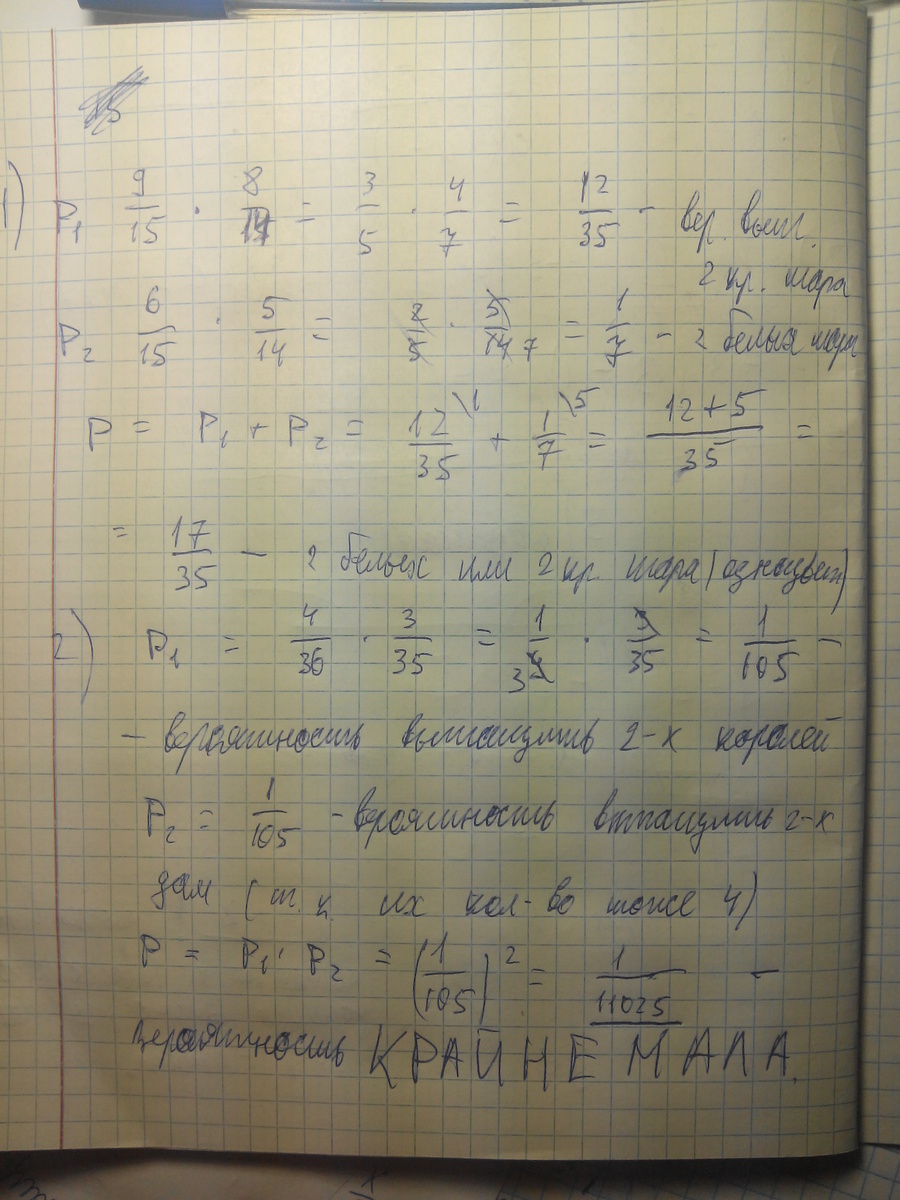 1) P₁ 9/15 · 8/14 = 3/5 · 4/7 = 12/35 - вер. выт.
2 кр. шара
P₂ 6/15 · 5/14 = 2/5 · 5/14 7 = 1/7 - 2 белых шара
P = P₁ + P₂ = 12/35 \1 + 1/7 \5 = 12+5/35 =
= 17/35 - 2 белых или 2 кр. шара (одноцвет)
2) P₁ = 4/36 · 3/35 = 1/9 3 · 3/35 = 1/105 -
- вероятность вытянуть 2-х королей
P₂ = 1/105 - вероятность вытянуть 2-х
дам (т.к их кол-во тоже 4)
P = P₁ · P₂ = (1/105)² = 1/11025 -
вероятность КРАЙНЕ МАЛА.